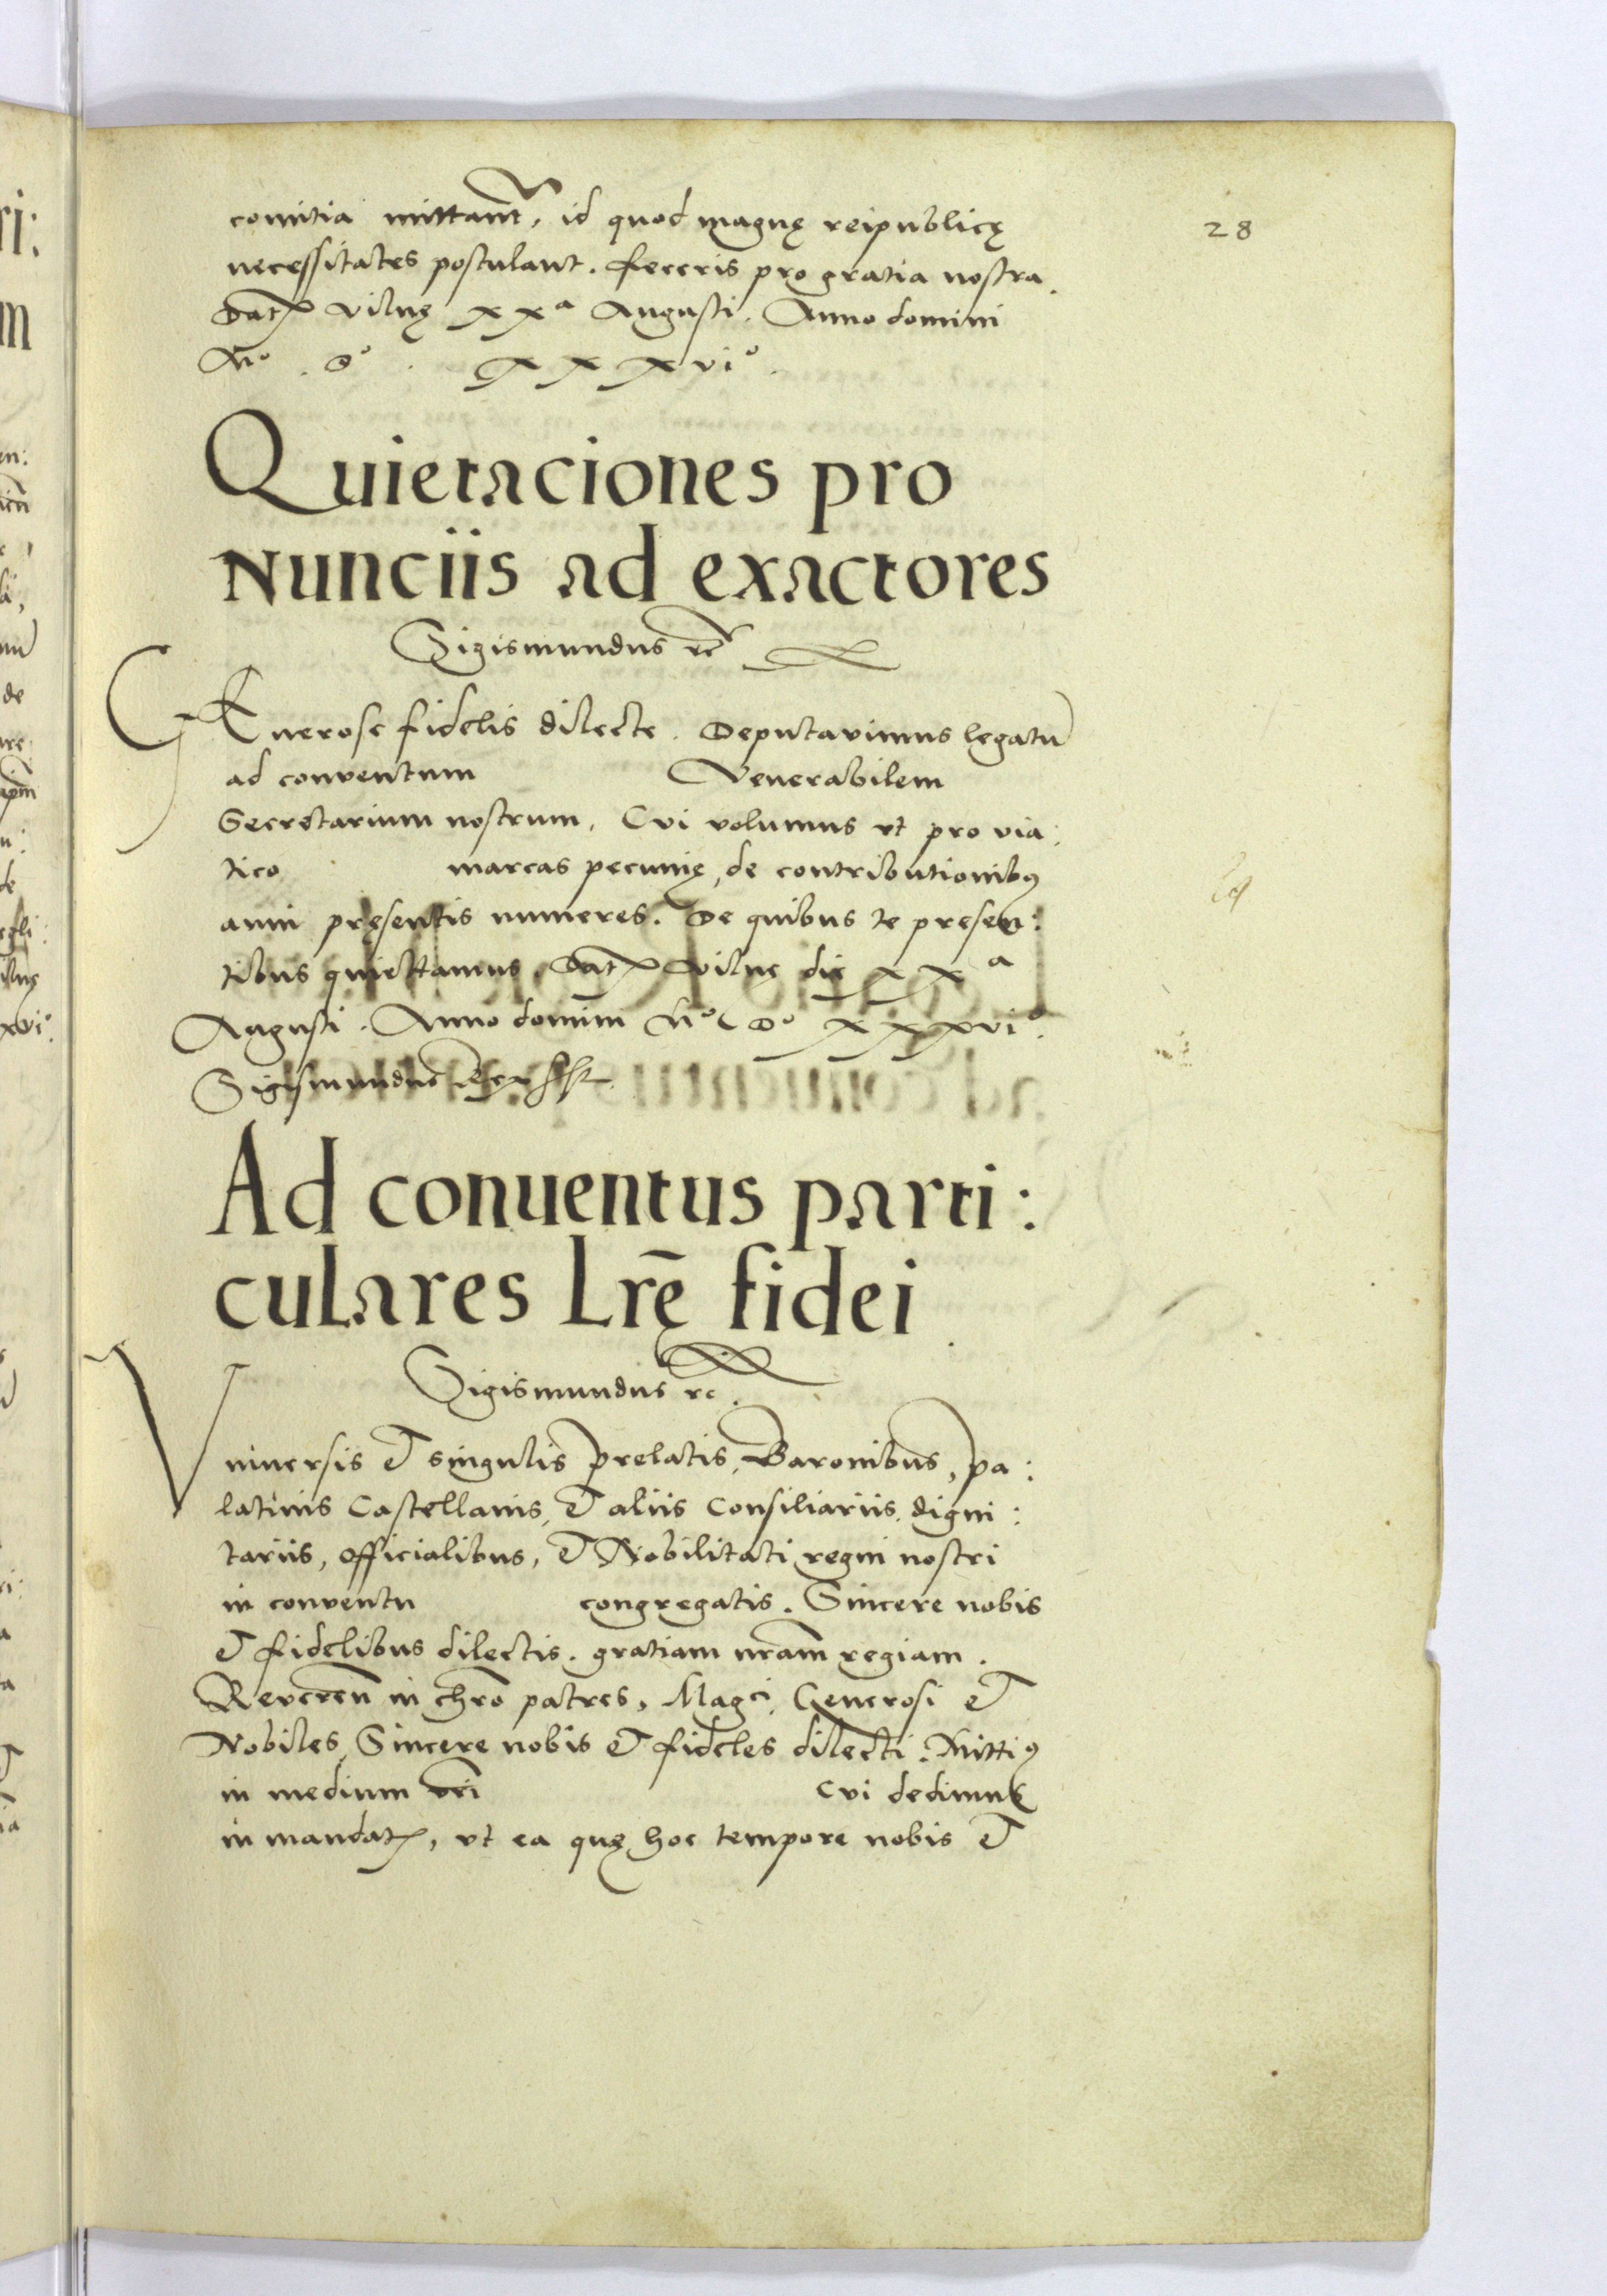 28
comitia mittant, id quod magnę reipublicę
necessitates postulant. feceris pro gratia nostra.
Dat Vilnę XXa Augusti. Anno domini
Mo. Do. XXXVIo.
Quietaciones pro
Nunciis ad exactores
Sigismundus rc
GEnerose fidelis dilecte. Deputavimus legatū
ad conventum Venerabilem
Secretarium nostrum, Cui volumus vt pro via:
tico marcas pecunię, de contributionibꝯ
anni pręsentis numeres. De quibus te presen:
tibus quiettamus. Dat Vilnę die XXa
Augusti. Anno domini Mo Do XXXVIo.
Sigismundus Rex sst
Ad conuentus parti:
culares Lrę̄ fidei
Sigismundus rc.
Vniuersis et singulis prelatis, Baronibus, pa:
latinis Castellanis, et aliis Consiliariis, digni:
tariis, officialibus, et Nobilitati regni nostri
in conventu congregatis. Sincere nobis
et fidelibus dilectis. gratiam nr̄am regiam.
Reveren̄ in chro patres, Magci, Generosi et
Nobiles, Sincere nobis et fideles dilecti. Mittiꝯ
in medium vr̄i Cui dedimus
in mandat, vt ea quę hoc tempore nobis et